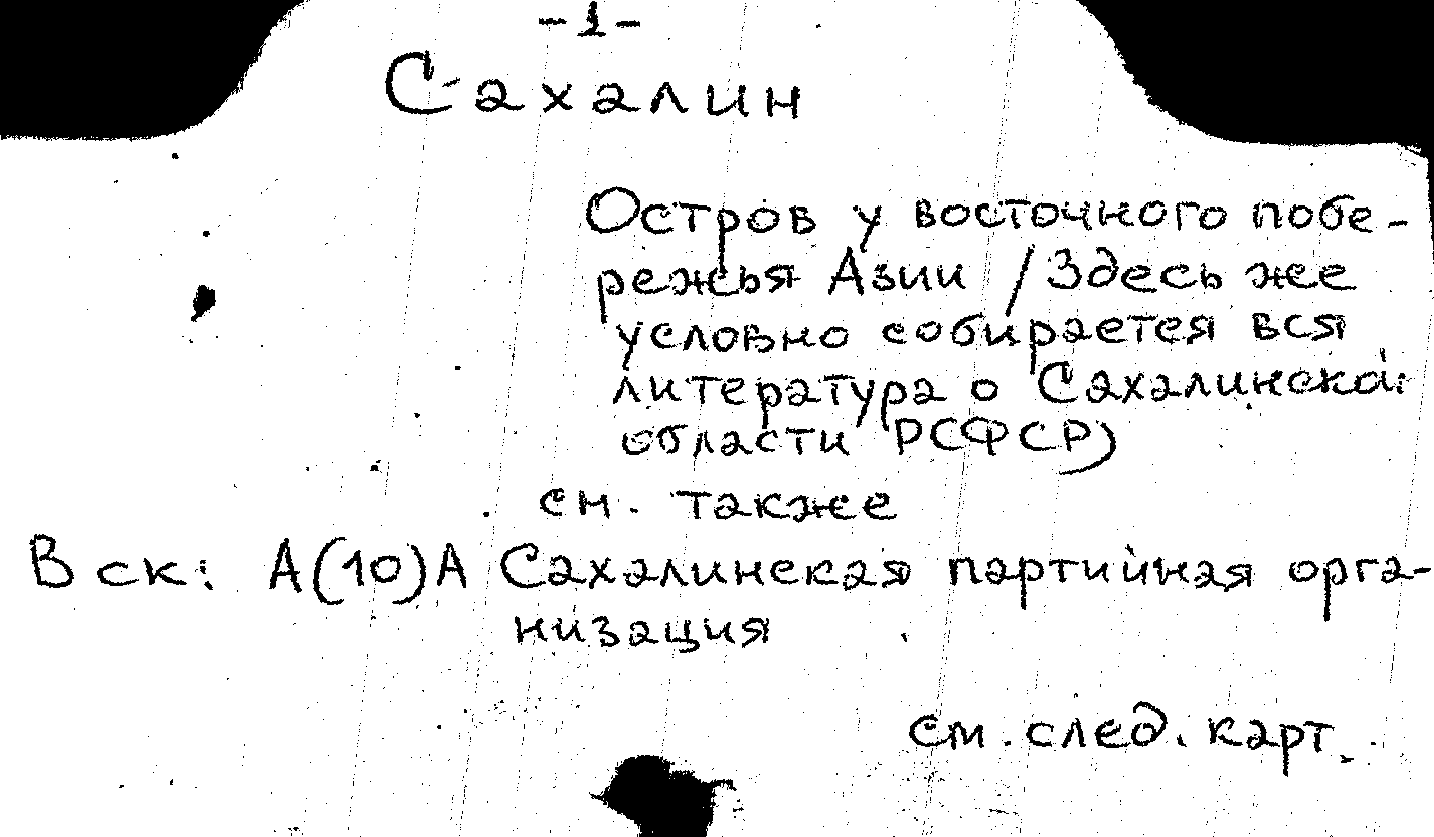 -1-
Сахалин
Остров у восточного побе-
режья Азии /Здесь же
условно собирается вся
литература о Сахалинской
области РСФСР)
см. также
В ск: А(10)А Сахалинская партийная орга-
низация
см. след. карт.